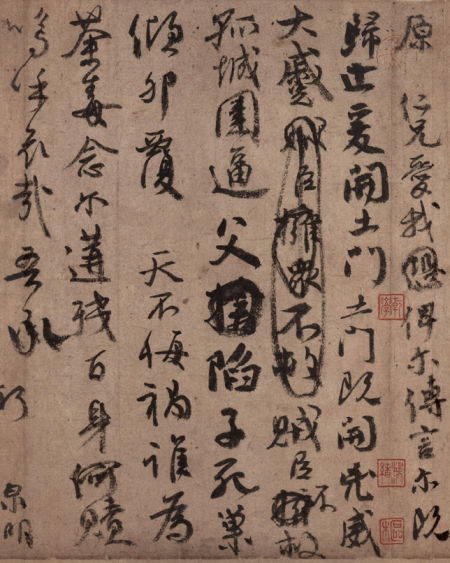 原 仁兄愛我恐俾爾傳言爾既
歸止爰開土門土門既開凶威
大蹙賊臣擁衆不救賊臣不救
孤城圍逼父陷子死巢
傾卵覆 天不悔禍誰為
荼毒念爾遘殘百身何贖
嗚呼哀哉吾承
泉明